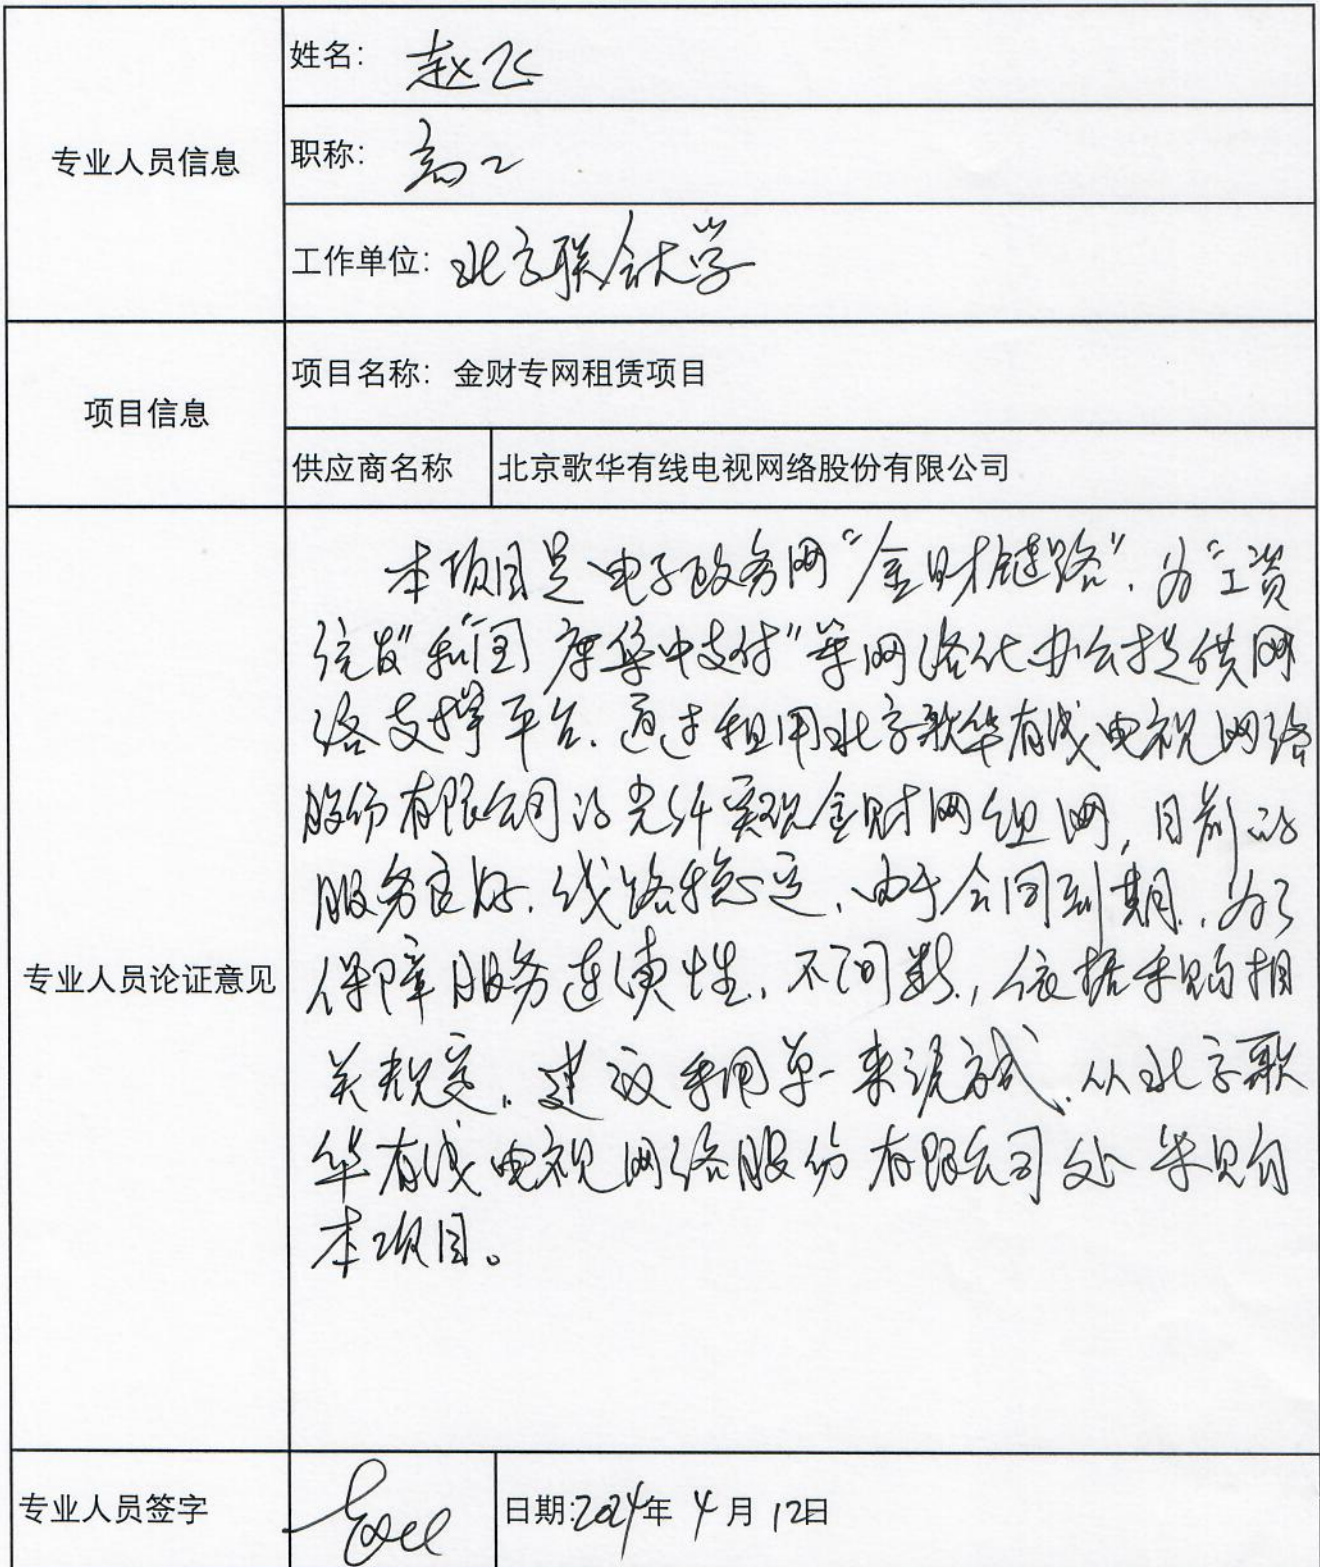 姓名：赵飞
专业人员信息
职称：高工
工作单位：北京联合大学
项目信息
项目名称：金财专网租赁项目
供应商名称 北京歌华有线电视网络股份有限公司
本项目是电子政务网“金财链路”，为“工资
统发”和“国库集中支付”等网络化办公提供网
络支撑平台。通过租用北京歌华有线电视网络
股份有限公司的光纤实现金财网组网，目前的
服务良好，线路稳定，由于合同到期，为了
保障服务连续性，不间断，依据采购相
关规定，建议采用单一来源方式，从北京歌
华有线电视网络股份有限公司处采购
本项目。
专业人员论证意见
专业人员签字
日期:2024年4月12日